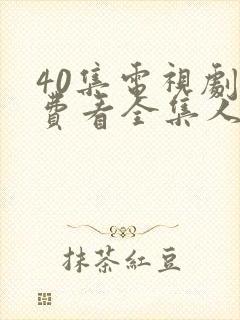 40集電視劇
費看全集人
抹茶紅豆